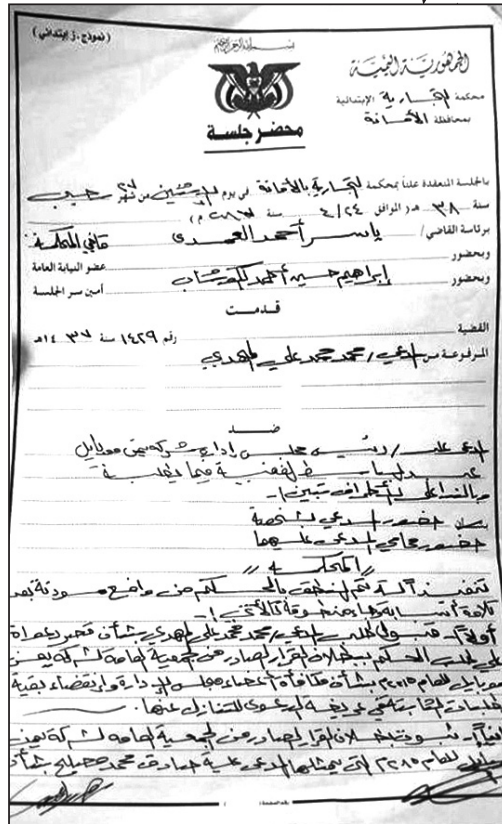 (نموذج ـ ز ابتدائي)
بسم الله الرحمن الرحيم
الجمهورية اليمنية
محكمة التجارية الإبتدائية
بمحافظة الأمانة
محضر جلسة
بالجلسة المنعقدة علناً بمحكمة التجارية بالأمانة في يوم الاثنين ٢٧ من شهر رجب
سنة ٣٨ هـ (الموافق ٢٤/٤ سنة ٢٠١٧ م)
برئاسة القاضي/ ياسر أحمد العمدي قاضي المحكمة
وبحضور عضو النيابة العامة
وبحضور إبراهيم حسين أحمد أمين سر الجلسة
قدمت
القضية رقم ١٤٢٩ سنة ١٤٣٧هـ
المرفوعة من المدعي/ محمد محمد علي المهدي
ضد
المدعى عليه/ رئيس مجلس إدارة شركة يمن موبايل
وبالنداء على الأطراف تبين:-
حضور المدعي بشخصه
حضور محامي المدعى عليهما
"المحكمة"
تم النطق بالحكم من واقع مسودته بعد
أولاً: قبول طلب المدعي/ محمد محمد علي المهدي بشأن قصر دعواه
على طلب الحكم ببطلان القرار الصادر من الجمعية العامة لشركة يمن
موبايل للعام ٢٠١٥م بشأن مكافأة أعضاء مجلس الإدارة وانقضاء بقية
الطلبات الثابتة في عريضة الدعوى للتنازل عنها.
ثانياً: ثبوت بطلان القرار الصادر من الجمعية العامة لشركة يمن
موبايل للعام ٢٠١٥م التي يمثلها المدعى عليه صادق محمد مصلح بشأن